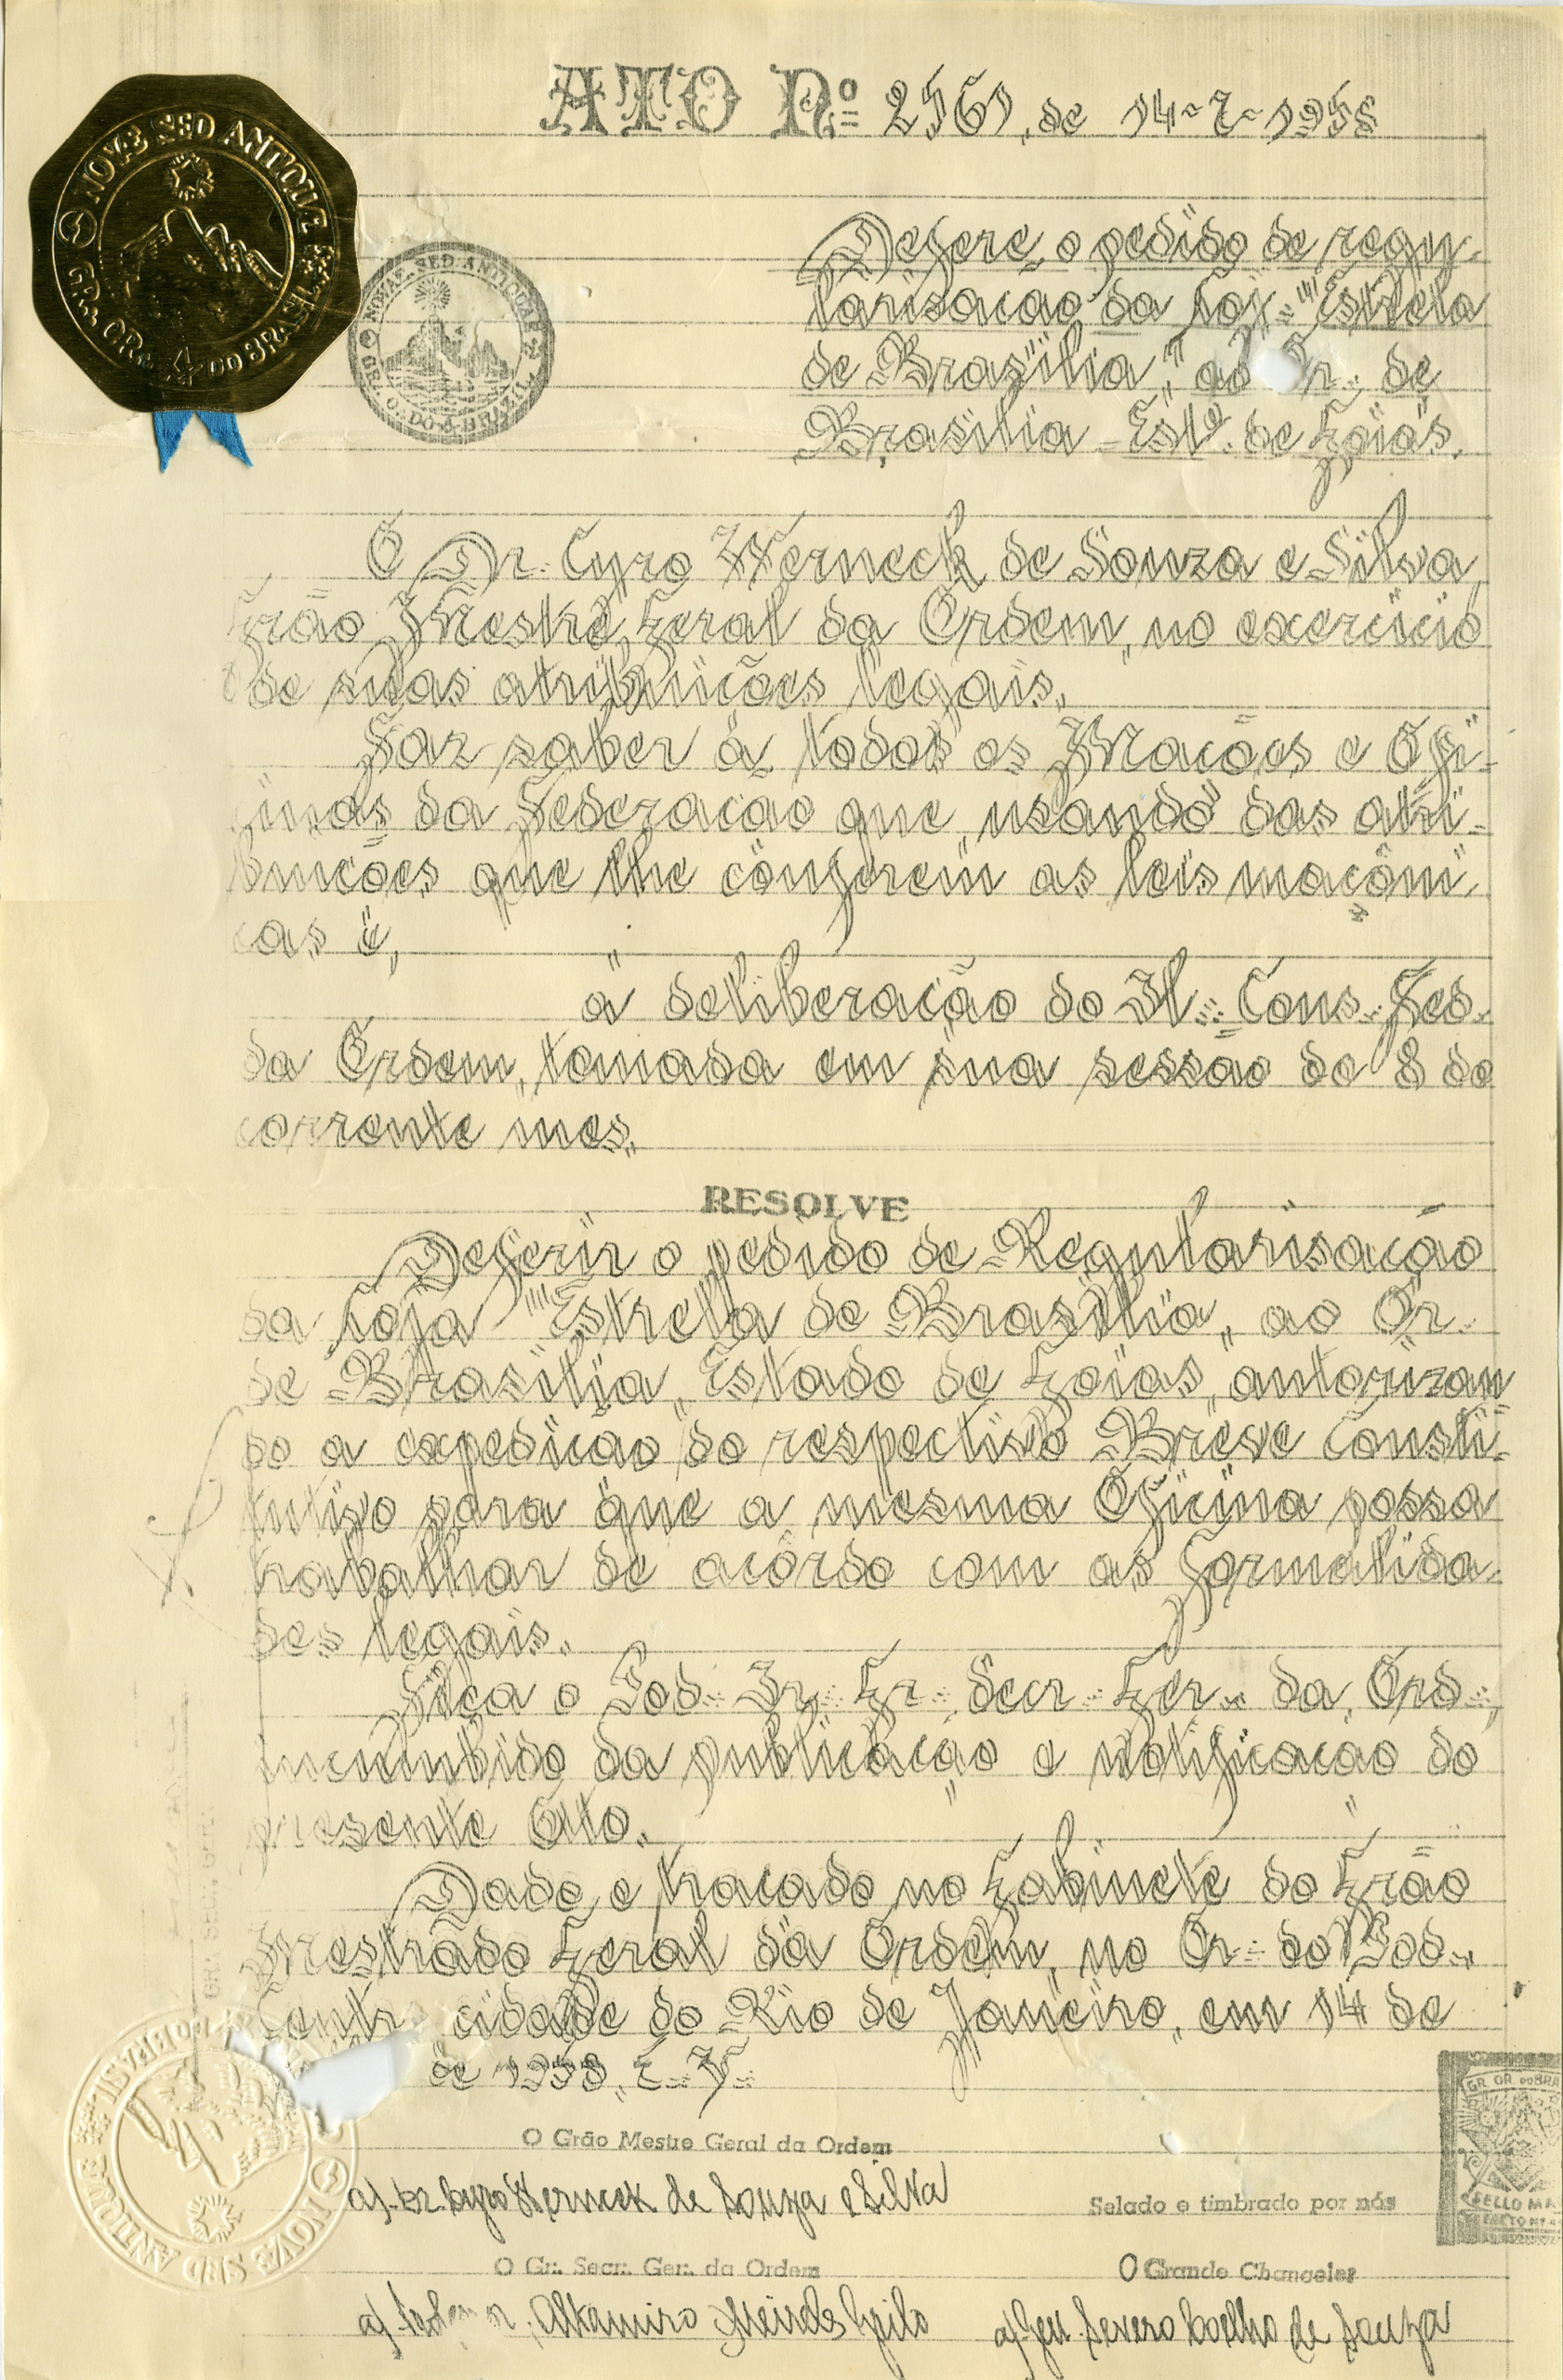 ATO Nº 2561, de 14-7-1958
NOVÆ SED ANTIQUÆ
GR∴ OR∴ DO BRASIL
NOVAE. SED ANTIQUAE
GR. O. DO BRAZIL
Defere o pedido de regu-
larisacao da Loj∴ "Estrela
de Brasilia", ao Or∴ de
Brasilia - Estº. de Goiás.
O Dr. Cyro Werneck de Souza e Silva,
Grão Mestre Geral da Ordem, no exercicio
de suas atribuições legais.
Faz saber á todos os Mações e Ofi-
cinas da Federacão que, usando das atri-
buicões que lhe conferem as leis maçôni-
cas e,
a deliberacão do Il∴ Cons∴ Fed∴
da Ordem, tomada em sua sessão de 8 do
corrente mes,
RESOLVE
Deferir o pedido de Regularisacão
da Loja "Estrella de Brasilia", ao Or∴
de Brasilia, Estado de Goiás, autorizan
do a expedicão do respectivo Breve Consti-
tutivo para que a mesma Oficina possa
trabalhar de acôrdo com as formalida-
des legais.
Fica o Pod∴ Ir∴ Gr∴ Secr∴ Ger∴ da Ord∴,
incumbido da publicação e notificação do
presente Ato.
Dado e traçado no Gabinete do Grão
Mestrado Geral da Ordem, no Or∴ do Pod∴
Centr∴ cidade do Rio de Janeiro, em 14 de
de 1958, E∴ V∴
O Grão Mestre Geral da Ordem
a) Dr. Cyro Werneck de Souza e Silva
Selado e timbrado por nós
GR. OR. DO BRA
SELLO MA
O Gr∴ Secr∴ Ger∴ da Ordem
O Grande Chanceler
Altamiro Mendes
Severo Coelho de Souza
NOVÆ SED ANTIQUÆ
DO BRASIL